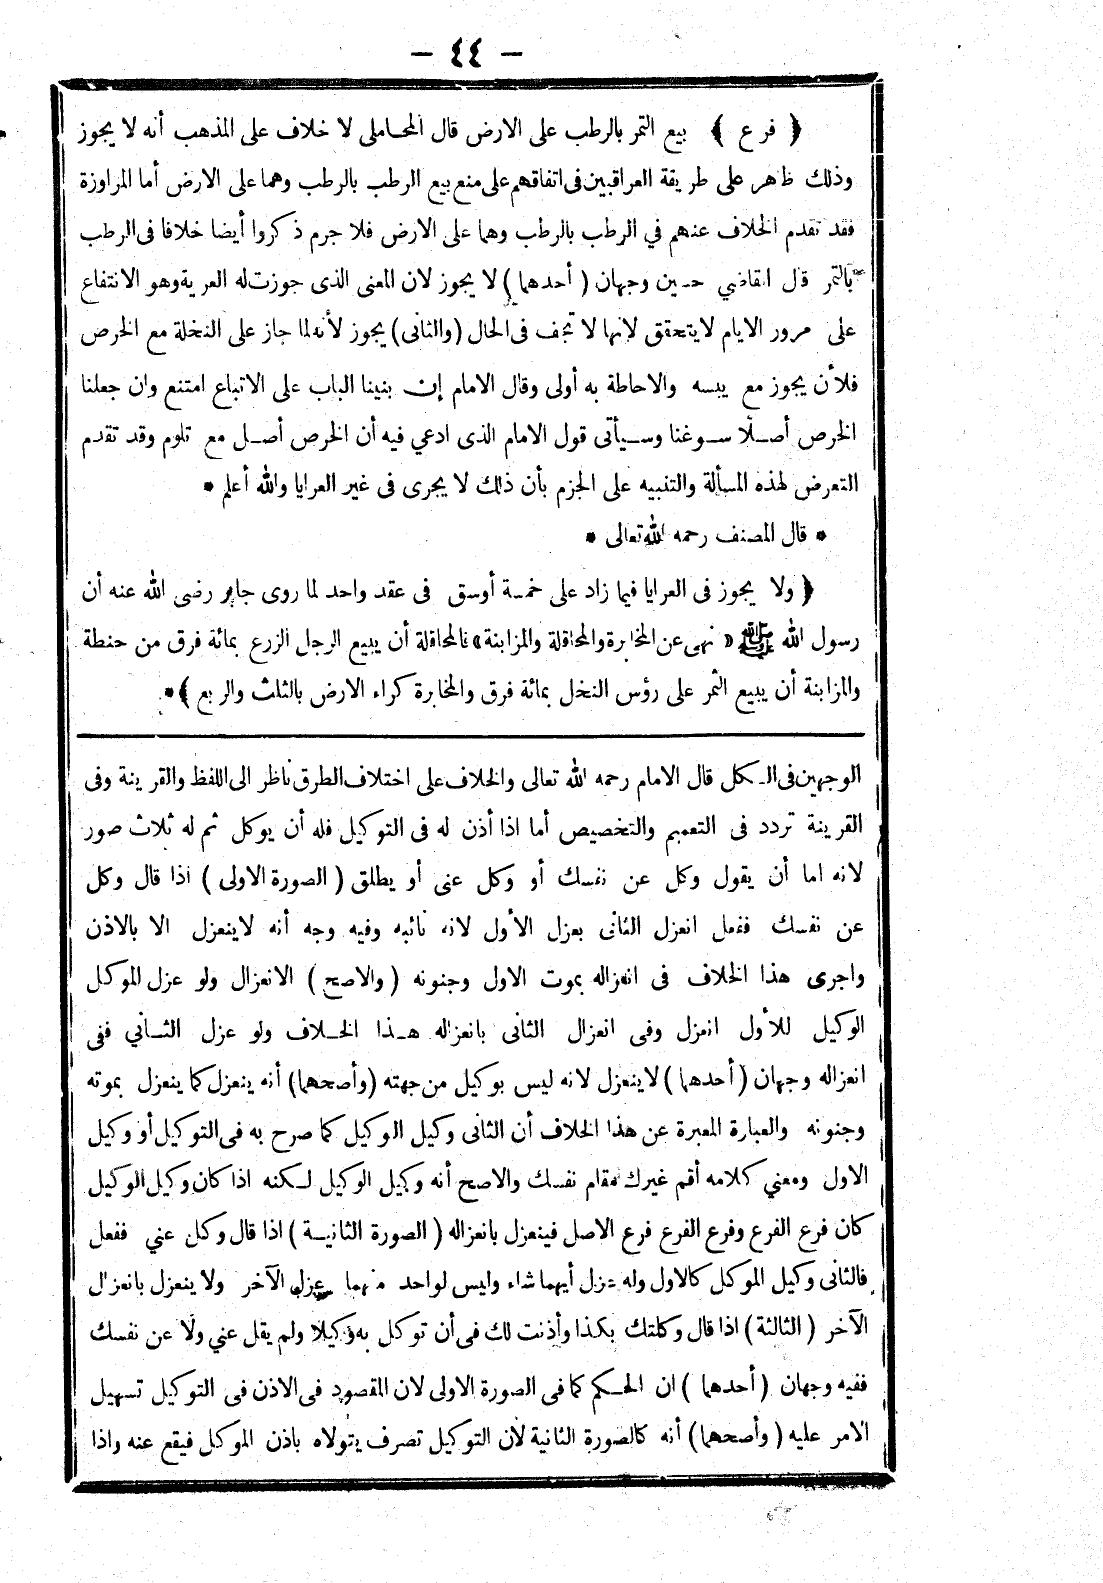 - ٤٤ -
﴿ فرع ﴾ بيع التمر بالرطب على الارض قال المحاملى لا خلاف على المذهب أنه لا يجوز
وذلك ظاهر على طريقة العراقيين فى اتفاقهم على منع بيع الرطب بالرطب وهما على الارض أما المراوزة
فقد تقدم الخلاف عنهم في الرطب بالرطب وهما على الارض فلا جرم ذكروا أيضا خلافا فى الرطب
بالتمر قال القاضي حسين وجهان ( أحدهما ) لا يجوز لان المعنى الذى جوزت له العرية وهو الانتفاع
على مرور الايام لا يتحقق لانها لا تجف فى الحال ( والثانى ) يجوز لأنه لما جاز على النخلة مع الخرص
فلأن يجوز مع يبسه والاحاطة به أولى وقال الامام إن بنينا الباب على الاتباع امتنع وان جعلنا
الخرص أصلا سوغنا وسيأتى قول الامام الذى ادعي فيه أن الخرص أصل مع تلوم وقد تقدم
التعرض لهذه المسألة والتنبيه على الجزم بأن ذلك لا يجرى فى غير العرايا والله أعلم *
* قال المصنف رحمه الله تعالى *
﴿ ولا يجوز فى العرايا فيما زاد على خمسة أوسق فى عقد واحد لما روى جابر رضى الله عنه أن
رسول الله ﷺ « نهى عن المخابرة والمحاقلة والمزابنة » فالمحاقلة أن يبيع الرجل الزرع بمائة فرق من حنطة
والمزابنة أن يبيع الثمر على رؤس النخل بمائة فرق والمخابرة كراء الارض بالثلث والربع ﴾ *
الوجهين فى الكل قال الامام رحمه الله تعالى والخلاف على اختلاف الطرق ناظر الى اللفظ والقرينة وفى
القرينة تردد فى التعميم والتخصيص أما اذا أذن له فى التوكيل فله أن يوكل ثم له ثلاث صور
لانه اما أن يقول وكل عن نفسك أو وكل عنى أو يطلق ( الصورة الاولى ) اذا قال وكل
عن نفسك ففعل انعزل الثانى بعزل الأول لانه نائبه وفيه وجه أنه لا ينعزل الا بالاذن
واجرى هذا الخلاف فى انعزاله بموت الاول وجنونه ( والاصح ) الانعزال ولو عزل الموكل
الوكيل للأول انعزل وفى انعزال الثانى بانعزاله هذا الخلاف ولو عزل الثاني ففى
انعزاله وجهان ( أحدهما ) لا ينعزل لانه ليس بوكيل من جهته ( وأصحهما ) أنه ينعزل كما ينعزل بموته
وجنونه والعبارة المعبرة عن هذا الخلاف أن الثانى وكيل الوكيل كما صرح به فى التوكيل أو وكيل
الاول ومعني كلامه أقم غيرك مقام نفسك والاصح أنه وكيل الوكيل لكنه اذا كان وكيل الوكيل
كان فرع الفرع وفرع الفرع فرع الاصل فينعزل بانعزاله ( الصورة الثانية ) اذا قال وكل عني ففعل
فالثانى وكيل الموكل كالاول وله عزل أيهما شاء وليس لواحد منهما عزل الآخر ولا ينعزل بانعزال
الآخر ( الثالثة ) اذا قال وكلتك بكذا وأذنت لك فى أن توكل به وكيلا ولم يقل عني ولا عن نفسك
ففيه وجهان ( أحدهما ) ان الحكم كما فى الصورة الاولى لان المقصود فى الاذن فى التوكيل تسهيل
الامر عليه ( وأصحهما ) أنه كالصورة الثانية لأن التوكيل تصرف يتولاه باذن الموكل فيقع عنه واذا